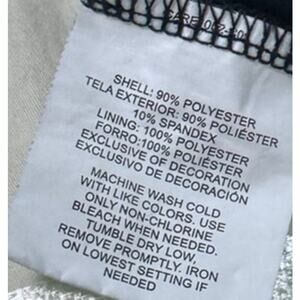 SHELL: 90% POLYESTER
TELA EXTERIOR: 90% POLIÉSTER
10% SPANDEX
LINING: 100% POLYESTER
FORRO:100% POLIÉSTER
EXCLUSIVE OF DECORATION
EXCLUSIVO DE DECORACIÓN
MACHINE WASH COLD
WITH LIKE COLORS. USE
ONLY NON-CHLORINE
BLEACH WHEN NEEDED.
TUMBLE DRY LOW,
REMOVE PROMPTLY. IRON
ON LOWEST SETTING IF
NEEDED